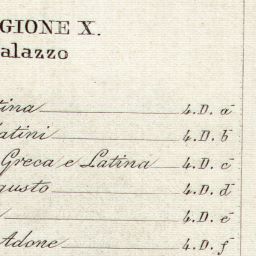 GIONE X.
alazzo
tina 4.D. a
atini 4.D. b
Greca e Latina 4.D. c
gusto 4.D. d
4.D. e
Adone 4.D. f